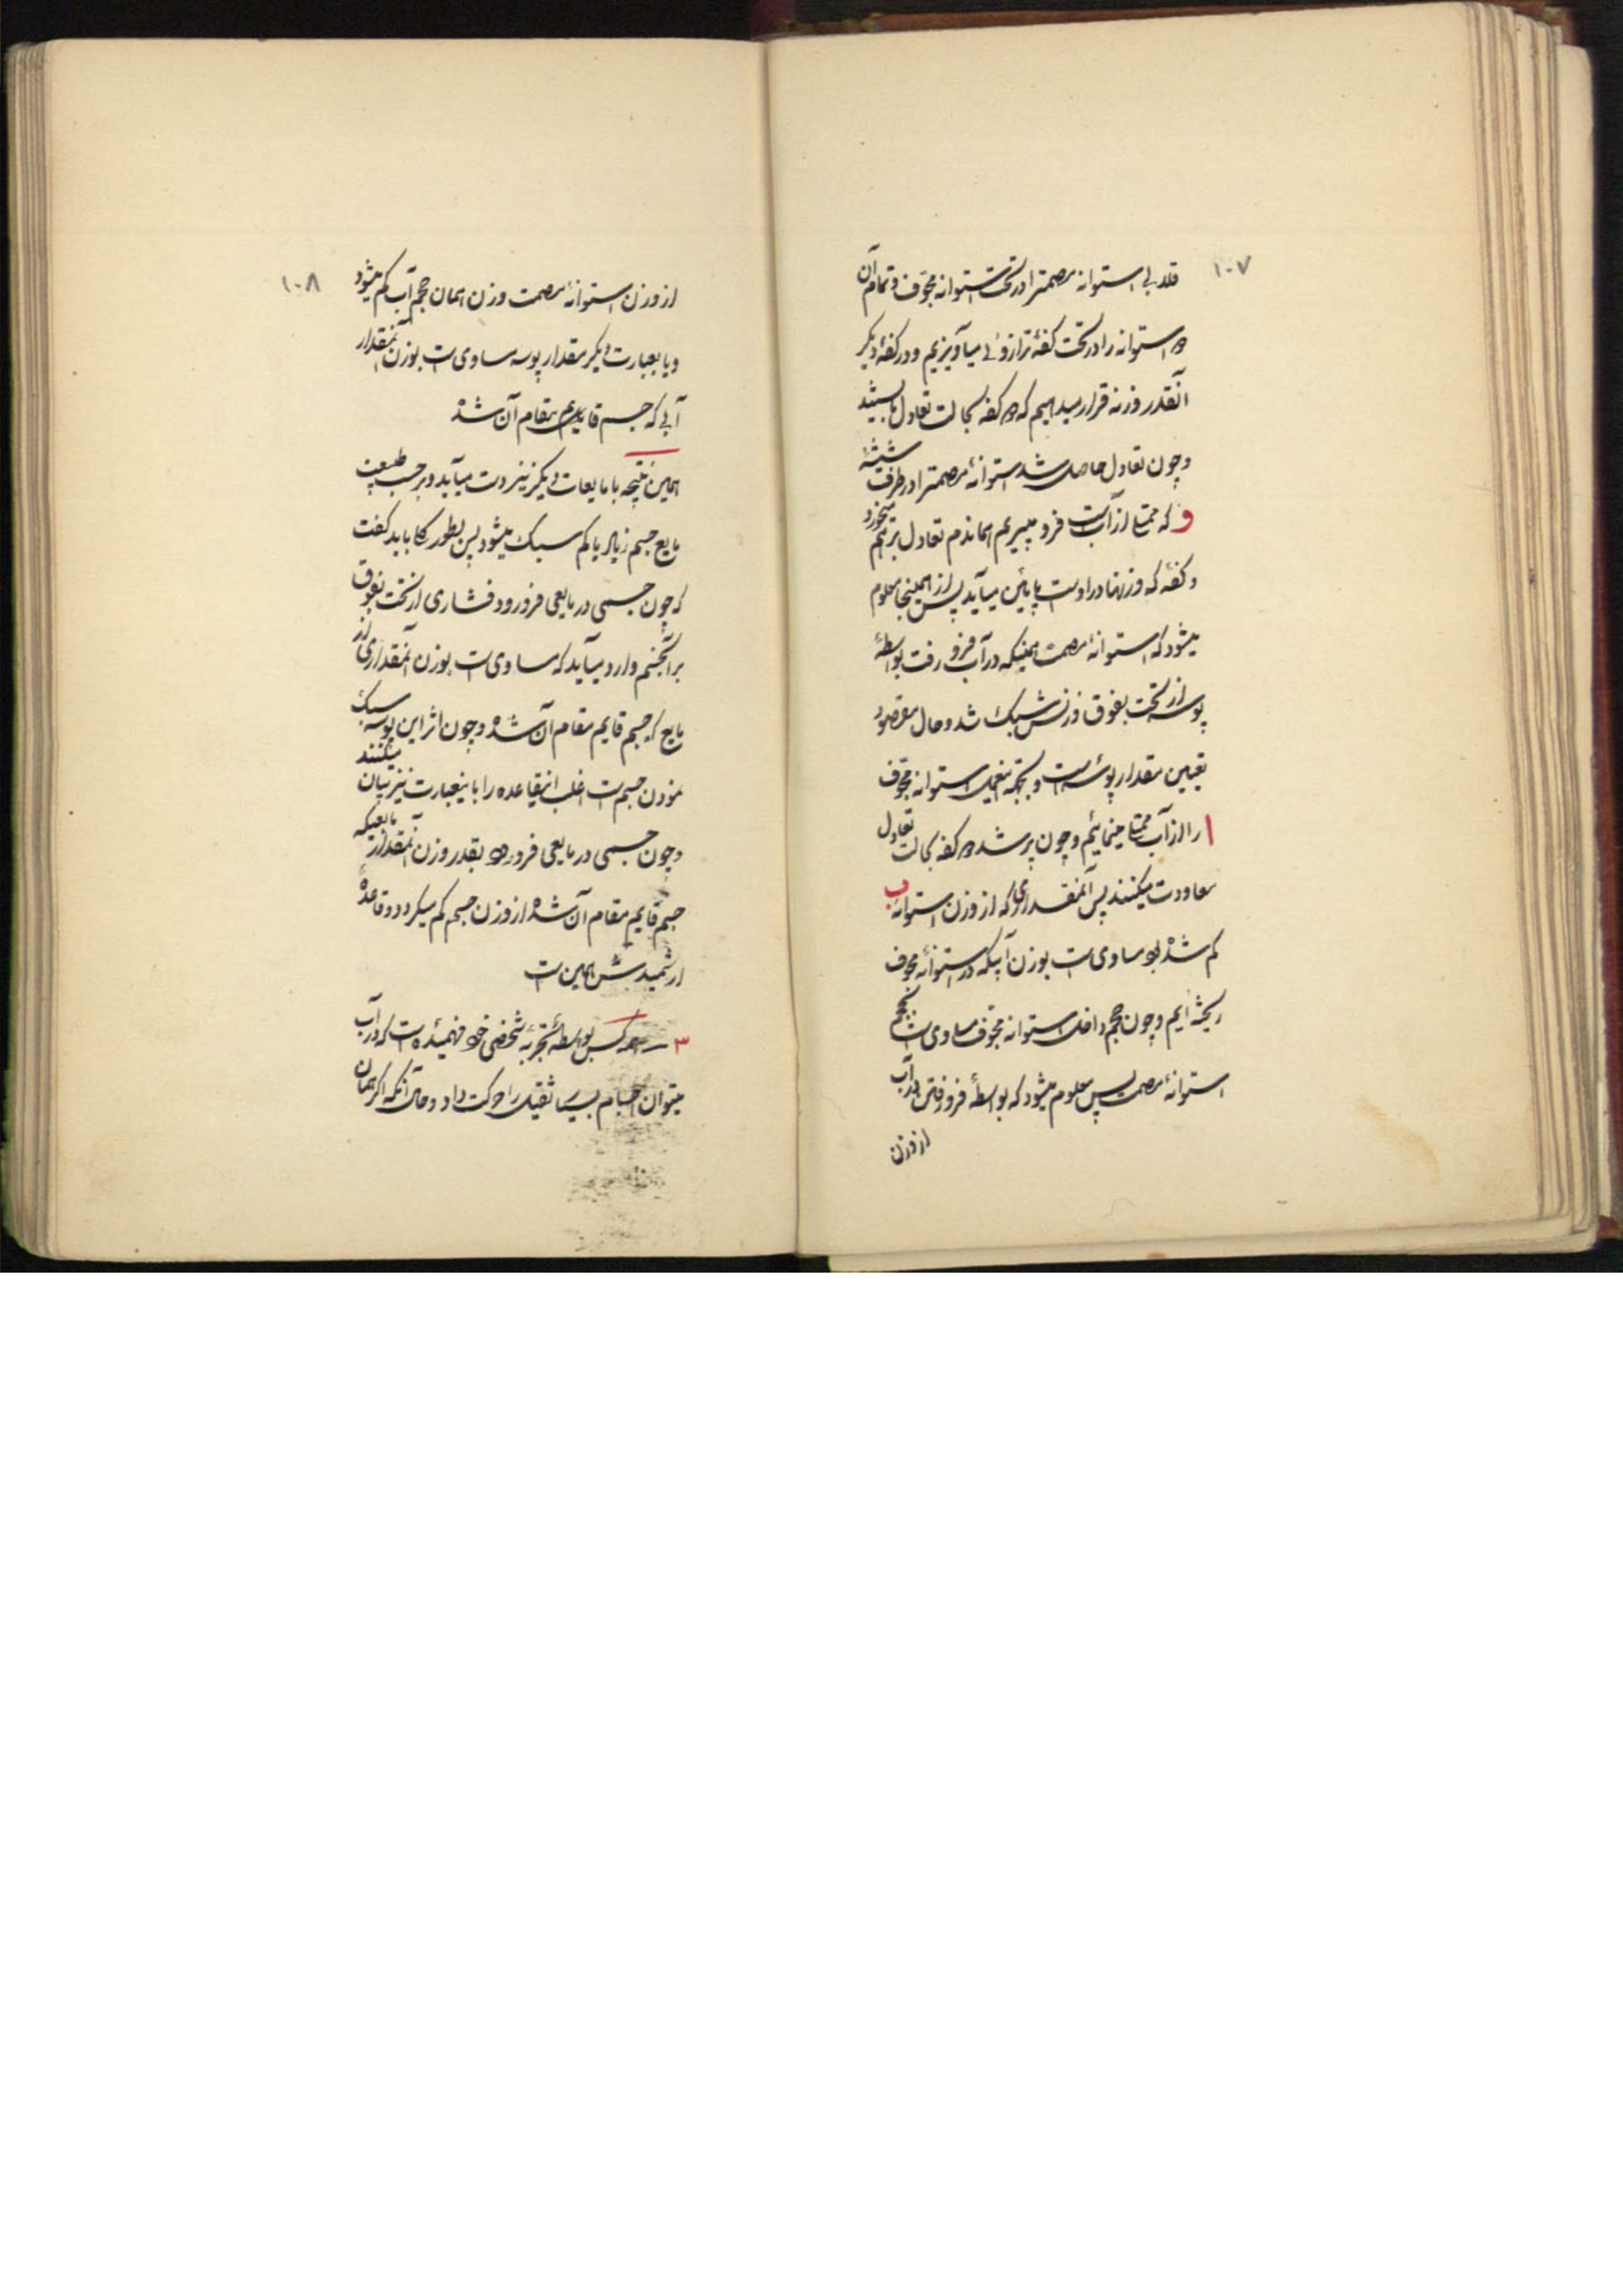 ۱۰۷
قلابی استوانه مصمترا در تحت استوانه مجوف و تمام آن
دو استوانه را در تحت کفهٔ ترازوئی میآویزیم و در کفهٔ دیکر
آنقدر وزنه قرار میدهیم که دو کفه بحالت تعادل بایستند
وچون تعادل حاصل شد استوانهٔ مصمترا در ظرف شیشهٔ
و که ممتلی از آب است فرو میبریم هماندم تعادل برهم میخورد
و کفهٔ که وزنهها در اوست پایین میآید پس از همینجا معلوم
میشود که استوانهٔ مصمت همینکه در آب فرو رفت بواسطهٔ
پوسه از تحت بفوق وزنش سبک شد و حال مقصود
تعیین مقدار پوسه است و بجهة اینعمل استوانه مجوف
ا را از آب ممتلی مینمائیم وچون پر شد دو کفه بحالت تعادل
معاودت میکنند پس آنمقداری که از وزن استوانه ب
کم شده بود مساوی است بوزن آبیکه در استوانهٔ مجوف
ریخته ایم وچون حجم داخل استوانه مجوف مساوی است بحجم
استوانهٔ مصمت پس معلوم میشود که بواسطهٔ فرو رفتن در آب
از وزن
۱۰۸
از وزن استوانهٔ مصمت وزن همان حجم آب کم میشود
ویا بعبارت دیکر مقدار پوسه مساوی است بوزن آنمقدار
آبی که جسم قایم مقام آن شده
همین نتیجه با مایعات دیکر نیز دست میآید و بر حسب طبیعت
مایع جسم زیاد یا کم سبک میشود پس بطور کلی باید کفت
که چون جسمی در مایعی فرو رود فشاری از تحت بفوق
بر آنجسم وارد میآید که مساوی است بوزن آنمقداری از
مایع که جسم قایم مقام آن شده وچون اثر این پوسه سبک
نمودن جسم است اغلب اینقاعده را باینعبارت نیز بیان میکنند
وچون جسمی در مایعی فرو رود بقدر وزن آنمقدار مایعیکه
جسم قایم مقام آن شده از وزن جسم کم میکردد و قاعدهٔ
ارشمیدش همین است
۳ ـ همه کس بواسطهٔ تجربهٔ شخصی خود فهمیده است که در آب
میتوان اجسام بسیار ثقیل را حرکت داد و حال آنکه اکر همان